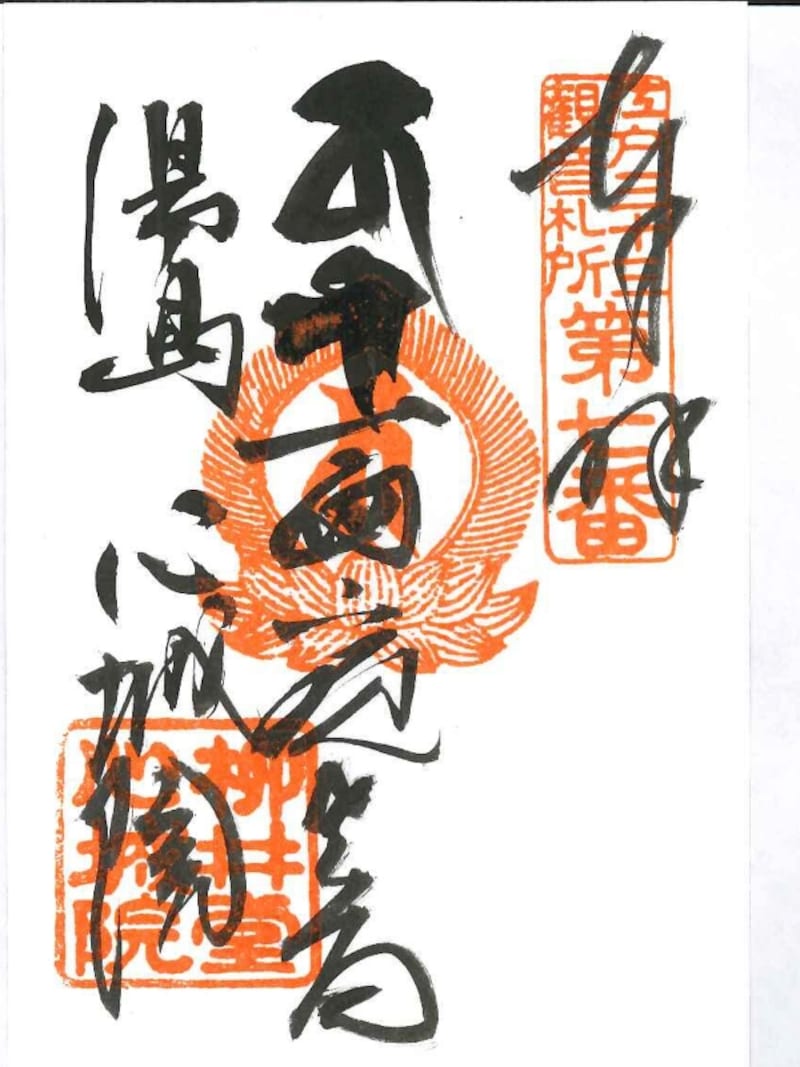 奉拝
江戸三十三
観音札所
第七番
十一面
湯島 心城院
柳井堂
心城院